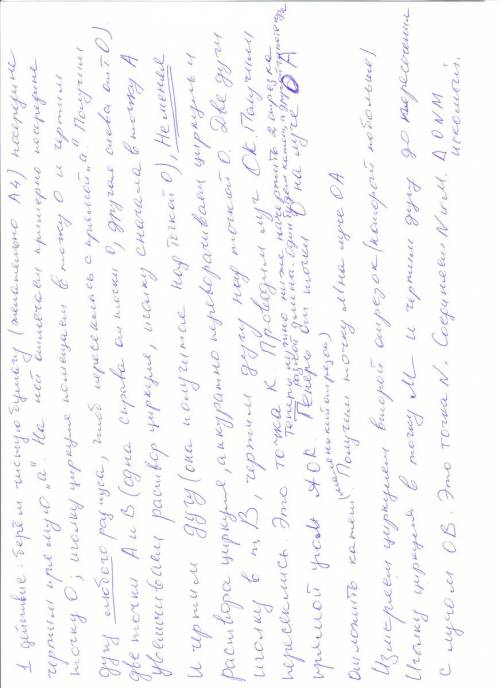 1 действие: берём чистую бумагу (желательно А4) посередине
чертим прямую „а". На ней отмечаем примерно посередине
точку О; иголку циркуля помещаем в точку О и чертим
дугу любого радиуса, чтоб пересеклась с прямой „а". Получим
две точки А и В (одна справа от точки О, другая слева от т О)
увеличиваем раствор циркуля, иголку сначала в точку А
и чертим дугу (она получится над точкой О), Не меняя
раствора циркуля, аккуратно переворачиваем циркуль и
иголку в т. В, чертим дугу над точкой О. Две дуги
пересеклись. Это точка К. Проводим луч ОК. Получим
Теперь нужно ниже начертить 2 отрезка
разной длины: один будет катет, а другой гипотенуза
прямой угол АОК. Теперь от точки О на луче ОА
отложить катет (маленький отрезок). Получим точку М на луче ОА
Измеряем циркулем второй отрезок (который побольше)
Иголку циркуля в точку М и чертим дугу до пересечения
с лучом ОВ. Это точка N. Соединяем N и М. Δ ONM
искомый.